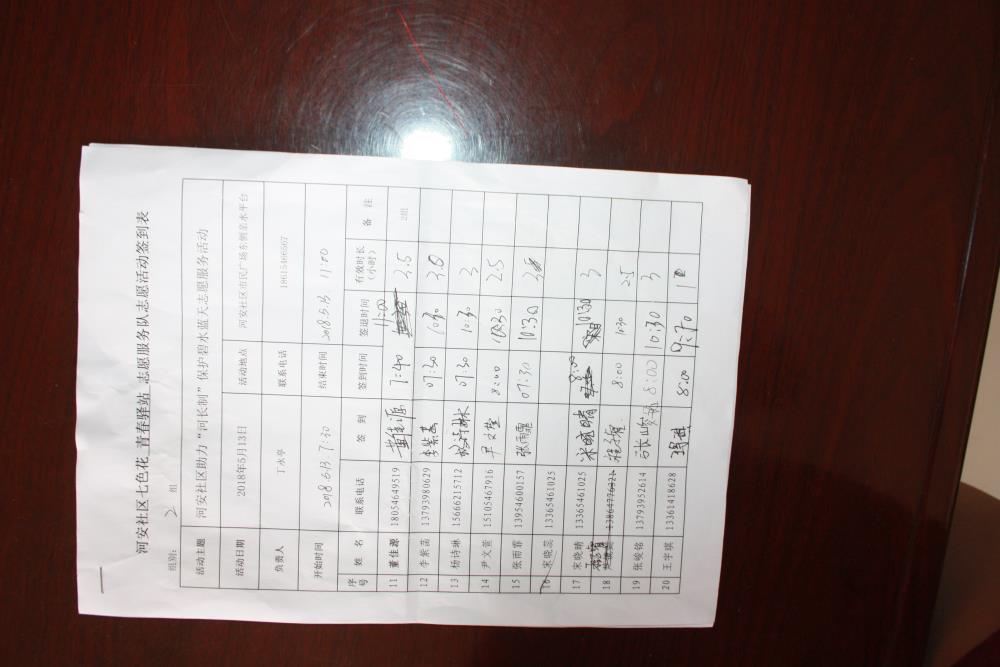 河安社区七色花_青春驿站 志愿服务队志愿活动签到表
组别： 2 组
活动主题 河安社区助力“河长制”保护碧水蓝天志愿服务活动
活动日期 2018年5月13日 活动地点 河安社区市民广场东侧亲水平台
负责人 丁水亭 联系电话 18615466567
开始时间 2018.5.13 7:30 结束时间 2018.5.13 11:00
序号 姓 名 联系电话 签 到 签到时间 签退时间 有效时长（小时） 备 注
11 董佳源 18054649519 董佳源 7:40 11:00 3.5 2组
12 李紫菡 13793980629 李紫菡 07:30 10:30 3.0
13 杨诗琳 15666215712 杨诗琳 07:30 10:30 3
14 尹文萱 15105467916 尹文萱 8:00 10:30 2.5
15 张雨霏 13954600157 张雨霏 07:30 10:30 3
16 宋晓蕊 13365461025
17 宋晓晴 13365461025 宋晓晴 8:00 10:30 3
18 13864776321 8:00 10:30 2.5
19 张峻铭 13793952614 8:00 10:30 3
20 王宇琪 13361418628 8:00 9:30 1